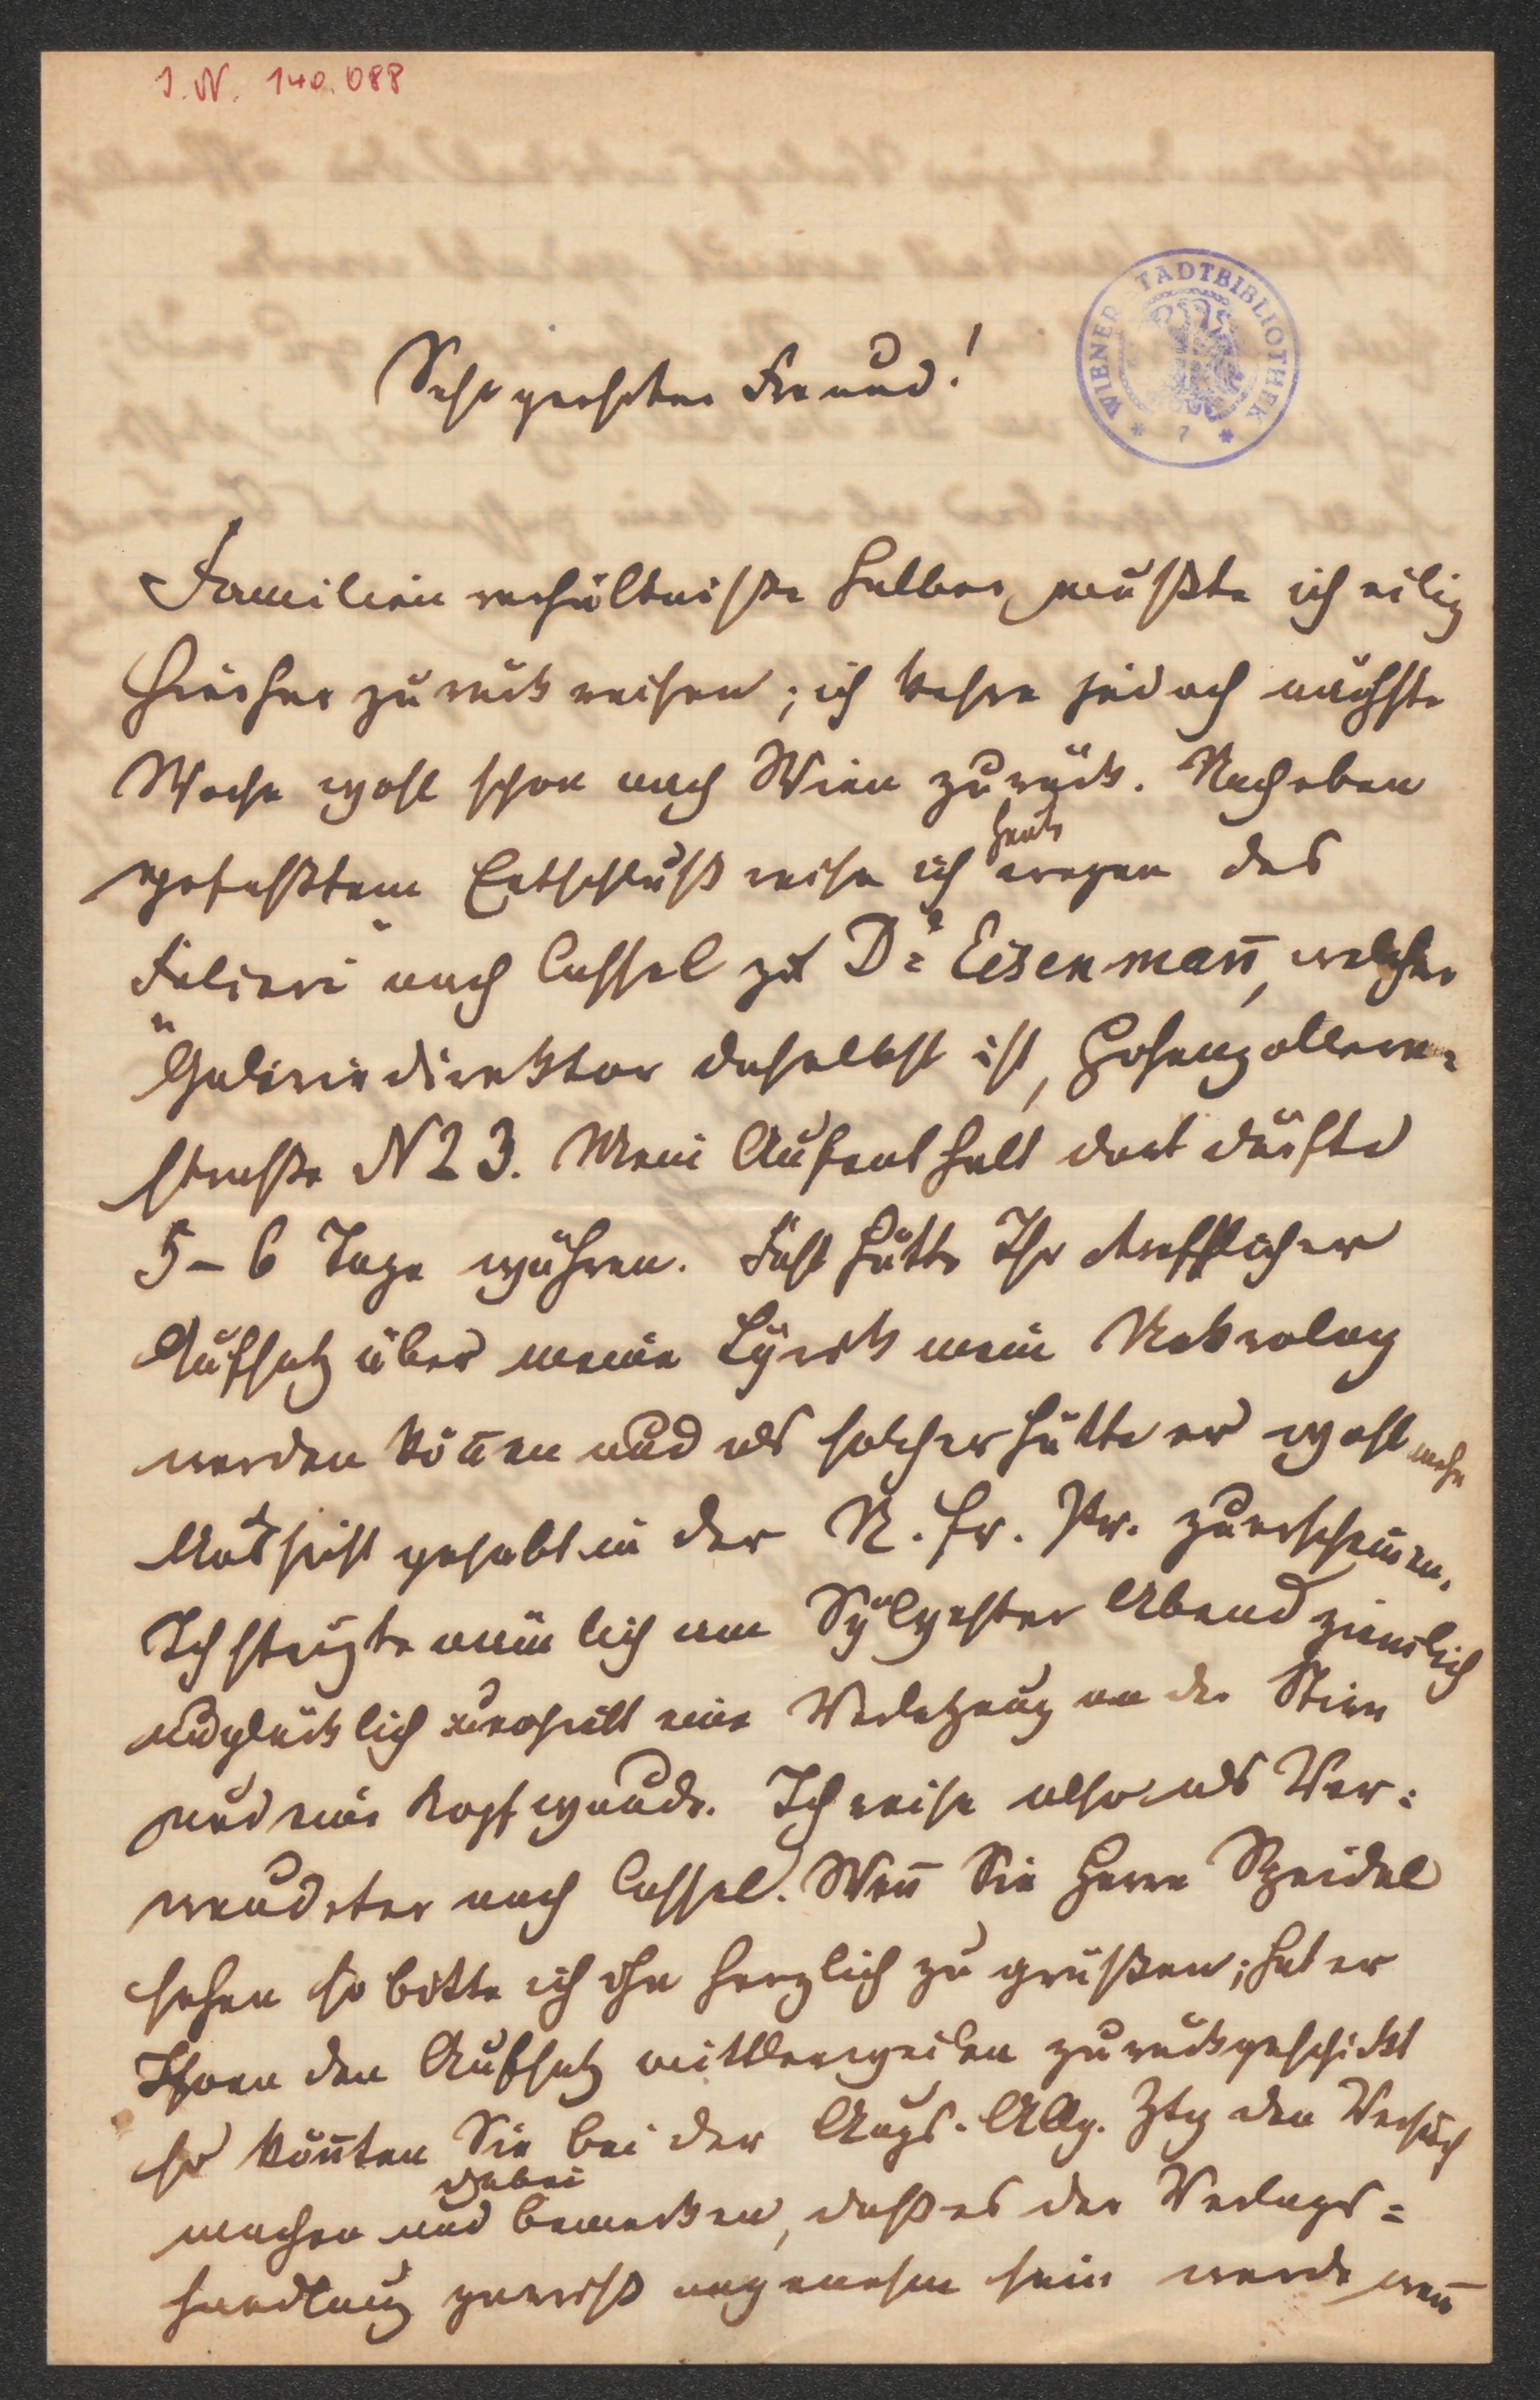 I.N. 140.088
WIENER STADTBIBLIOTHEK
* 7 *
Sehr geehrter Freund!
Familienverhältniße halber mußte ich eilig
hierher zurück reisen; ich kehre jedoch nächste
Woche wohl schon nach Wien zurück. Nach eben
gefaßtem Entschluß reise ich heute wegen des
"Falieri" nach Cassel zu Dr. Eisenman̄, welcher
Galeriedirektor daselbst ist, Hohenzollern=
straße N 23. Mein Aufenthalt dort dürfte
5–6 Tage währen. Fast hätte Ihr trefflicher
Aufsatz über meine Lyrik mein Nekrolog
werden kön̄en und als solcher hätte er wohl mehr
Aussicht gehabt in der N. fr. Pr. zu erscheinen.
Ich stürzte nämlich am Sylvester Abend ziemlich
unglücklich u. erhielt eine Verletzung an der Stirn
und eine Kopfwunde. Ich reise also als Ver=
wundeter nach Cassel. Wen̄ Sie Herrn Speidel
sehen so bitte ich ihn herzlich zu grüßen; hat er
Ihnen den Aufsatz mittlerweilen zurückgeschickt
so kön̄ten Sie bei der Augs. Allg. Ztg den Versuch
machen und dabei bemerken, daß es der Verlags=
handlung gewiß angenehm sein werde wen̄